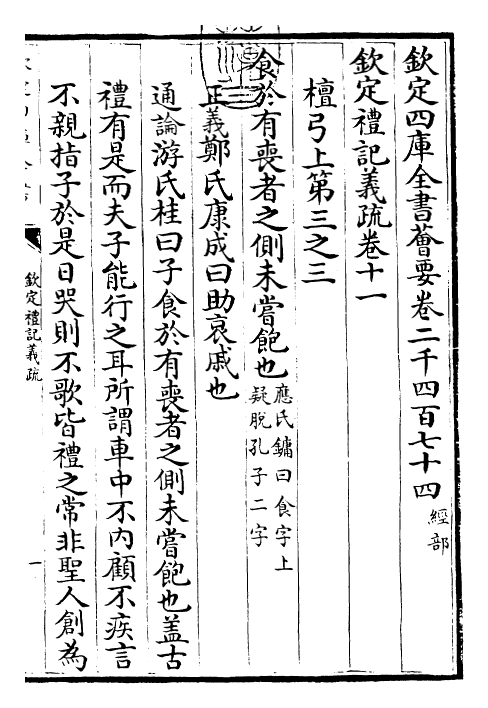 欽定四庫全書薈要卷二千四百七十四 經部
欽定禮記義疏卷十一
檀弓上第三之三
食於有喪者之側未嘗飽也 應氏鏞曰食字上
疑脫孔子二字
正義鄭氏康成曰助哀戚也
通論游氏桂曰子食於有喪者之側未嘗飽也盖古
禮有是而夫子能行之耳所謂車中不內顧不疾言
不親指子於是日哭則不歌皆禮之常非聖人創為
欽定禮記義疏
一